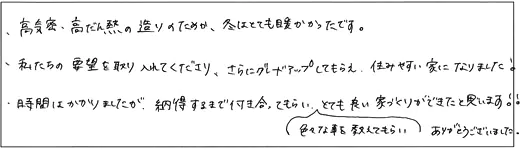 、高気密・高だん熱の造りのためか、冬はとても暖かかったです。
・私たちの要望を取り入れてくださり、さらにグレードアップしてもらえ、住みやすい家になりました!
・時間はかかりましたが、納得するまで付き合ってもらい、とても良い家づくりができたと思います!!
色々な事を教えてもらい ありがとうございました。